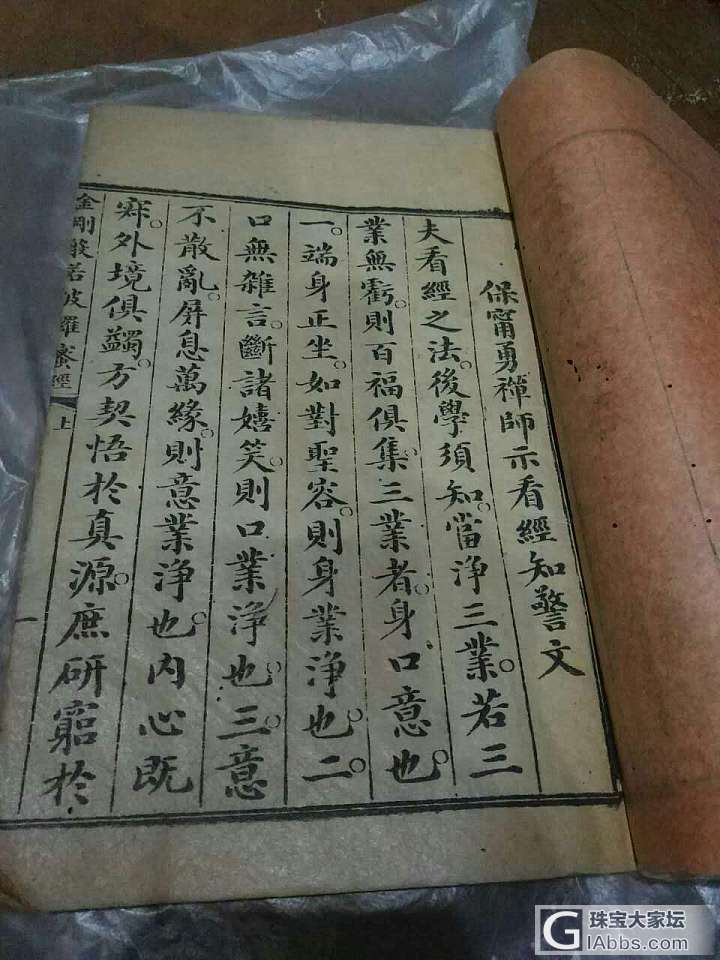 保甯勇禪師示看經知警文
夫看經之法。後學須知。當淨三業。若三
業無虧。則百福俱集。三業者。身口意也。
一。端身正坐。如對聖容。則身業淨也。二。
口無雜言。斷諸嬉笑。則口業淨也。三。意
不散亂。屏息萬緣。則意業淨也。內心既
寂。外境俱蠲。方契悟於真源。庶研窮於
金剛般若波羅蜜經 上 一
珠宝大家坛
GIAbbs.com